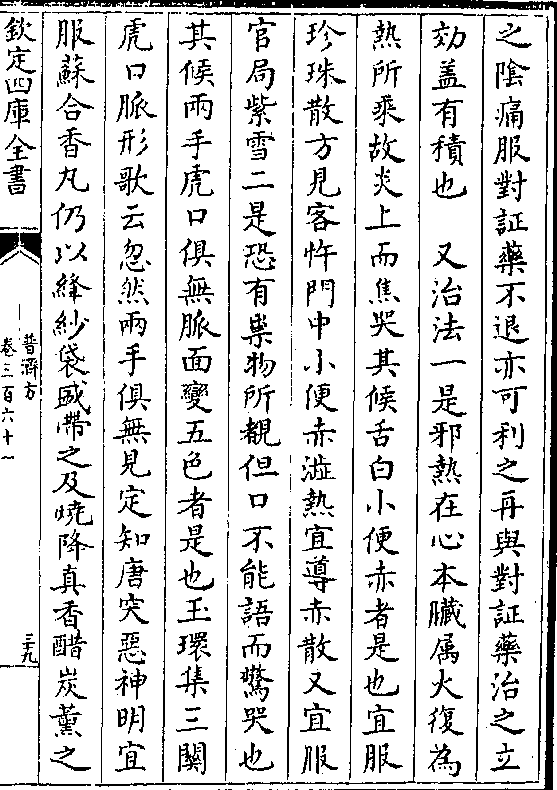 之隂痛服對証藥不退亦可利之再與對証藥治之立
効盖有積也　又治法一是邪熱在心本臟属火復為
熱所乘故炎上而焦哭其候舌白小便赤者是也宜服
珍珠散方見客忤門中小便赤澁熱宜導赤散又宜服
官局紫雪二是恐有祟物所覩但口不能語而驚哭也
其候兩手虎口俱無脈面變五色者是也玉環集三關
虎口脈形歌云忽然兩手俱無見定知唐突惡神明宜
服蘇合香丸仍以絳紗袋盛帶之及燒降真香醋炭薫之
欽定四庫全書
普濟方
卷三百六十一
三九